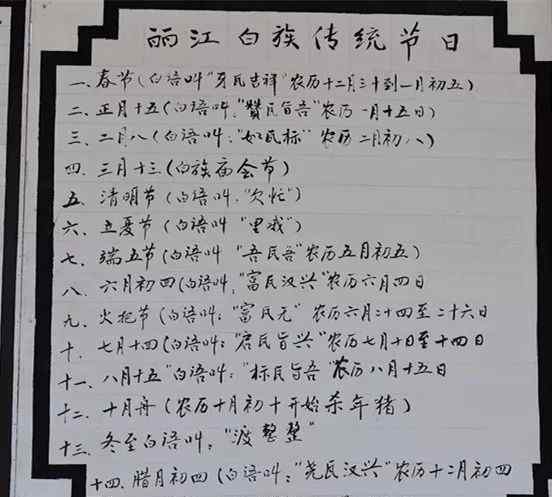 丽江白族传统节日
一、春节(白语叫"牙民吉祥"农历十二月三十到一月初五)
二、正月十五(白语叫,"赞民旨吾"农历一月十五日)
三、二月八(白语叫:"如民标"农历二月初八)
四、三月十三(白族庙会节)
五、清明节(白语叫,"欠忙")
六、立夏节(白语叫"里戓")
七、端五节(白语叫"吾民吾"农历五月初五)
八、六月初四(白语叫,"富民汉兴"农历六月四日
九、火把节(白语叫:"富民元"农历六月二十四至二十六日
十、七月十四(白语叫:"君民旨兴"农历七月十日至十四日
十一、八月十五"白语叫:"标民旨吾 农历八月十五日
十二、十月舟(农历十月初十开始杀年猪)
十三、冬至白语叫,"渡整"
十四、腊月初四(白语叫:"羌民汉兴"农历十二月初四